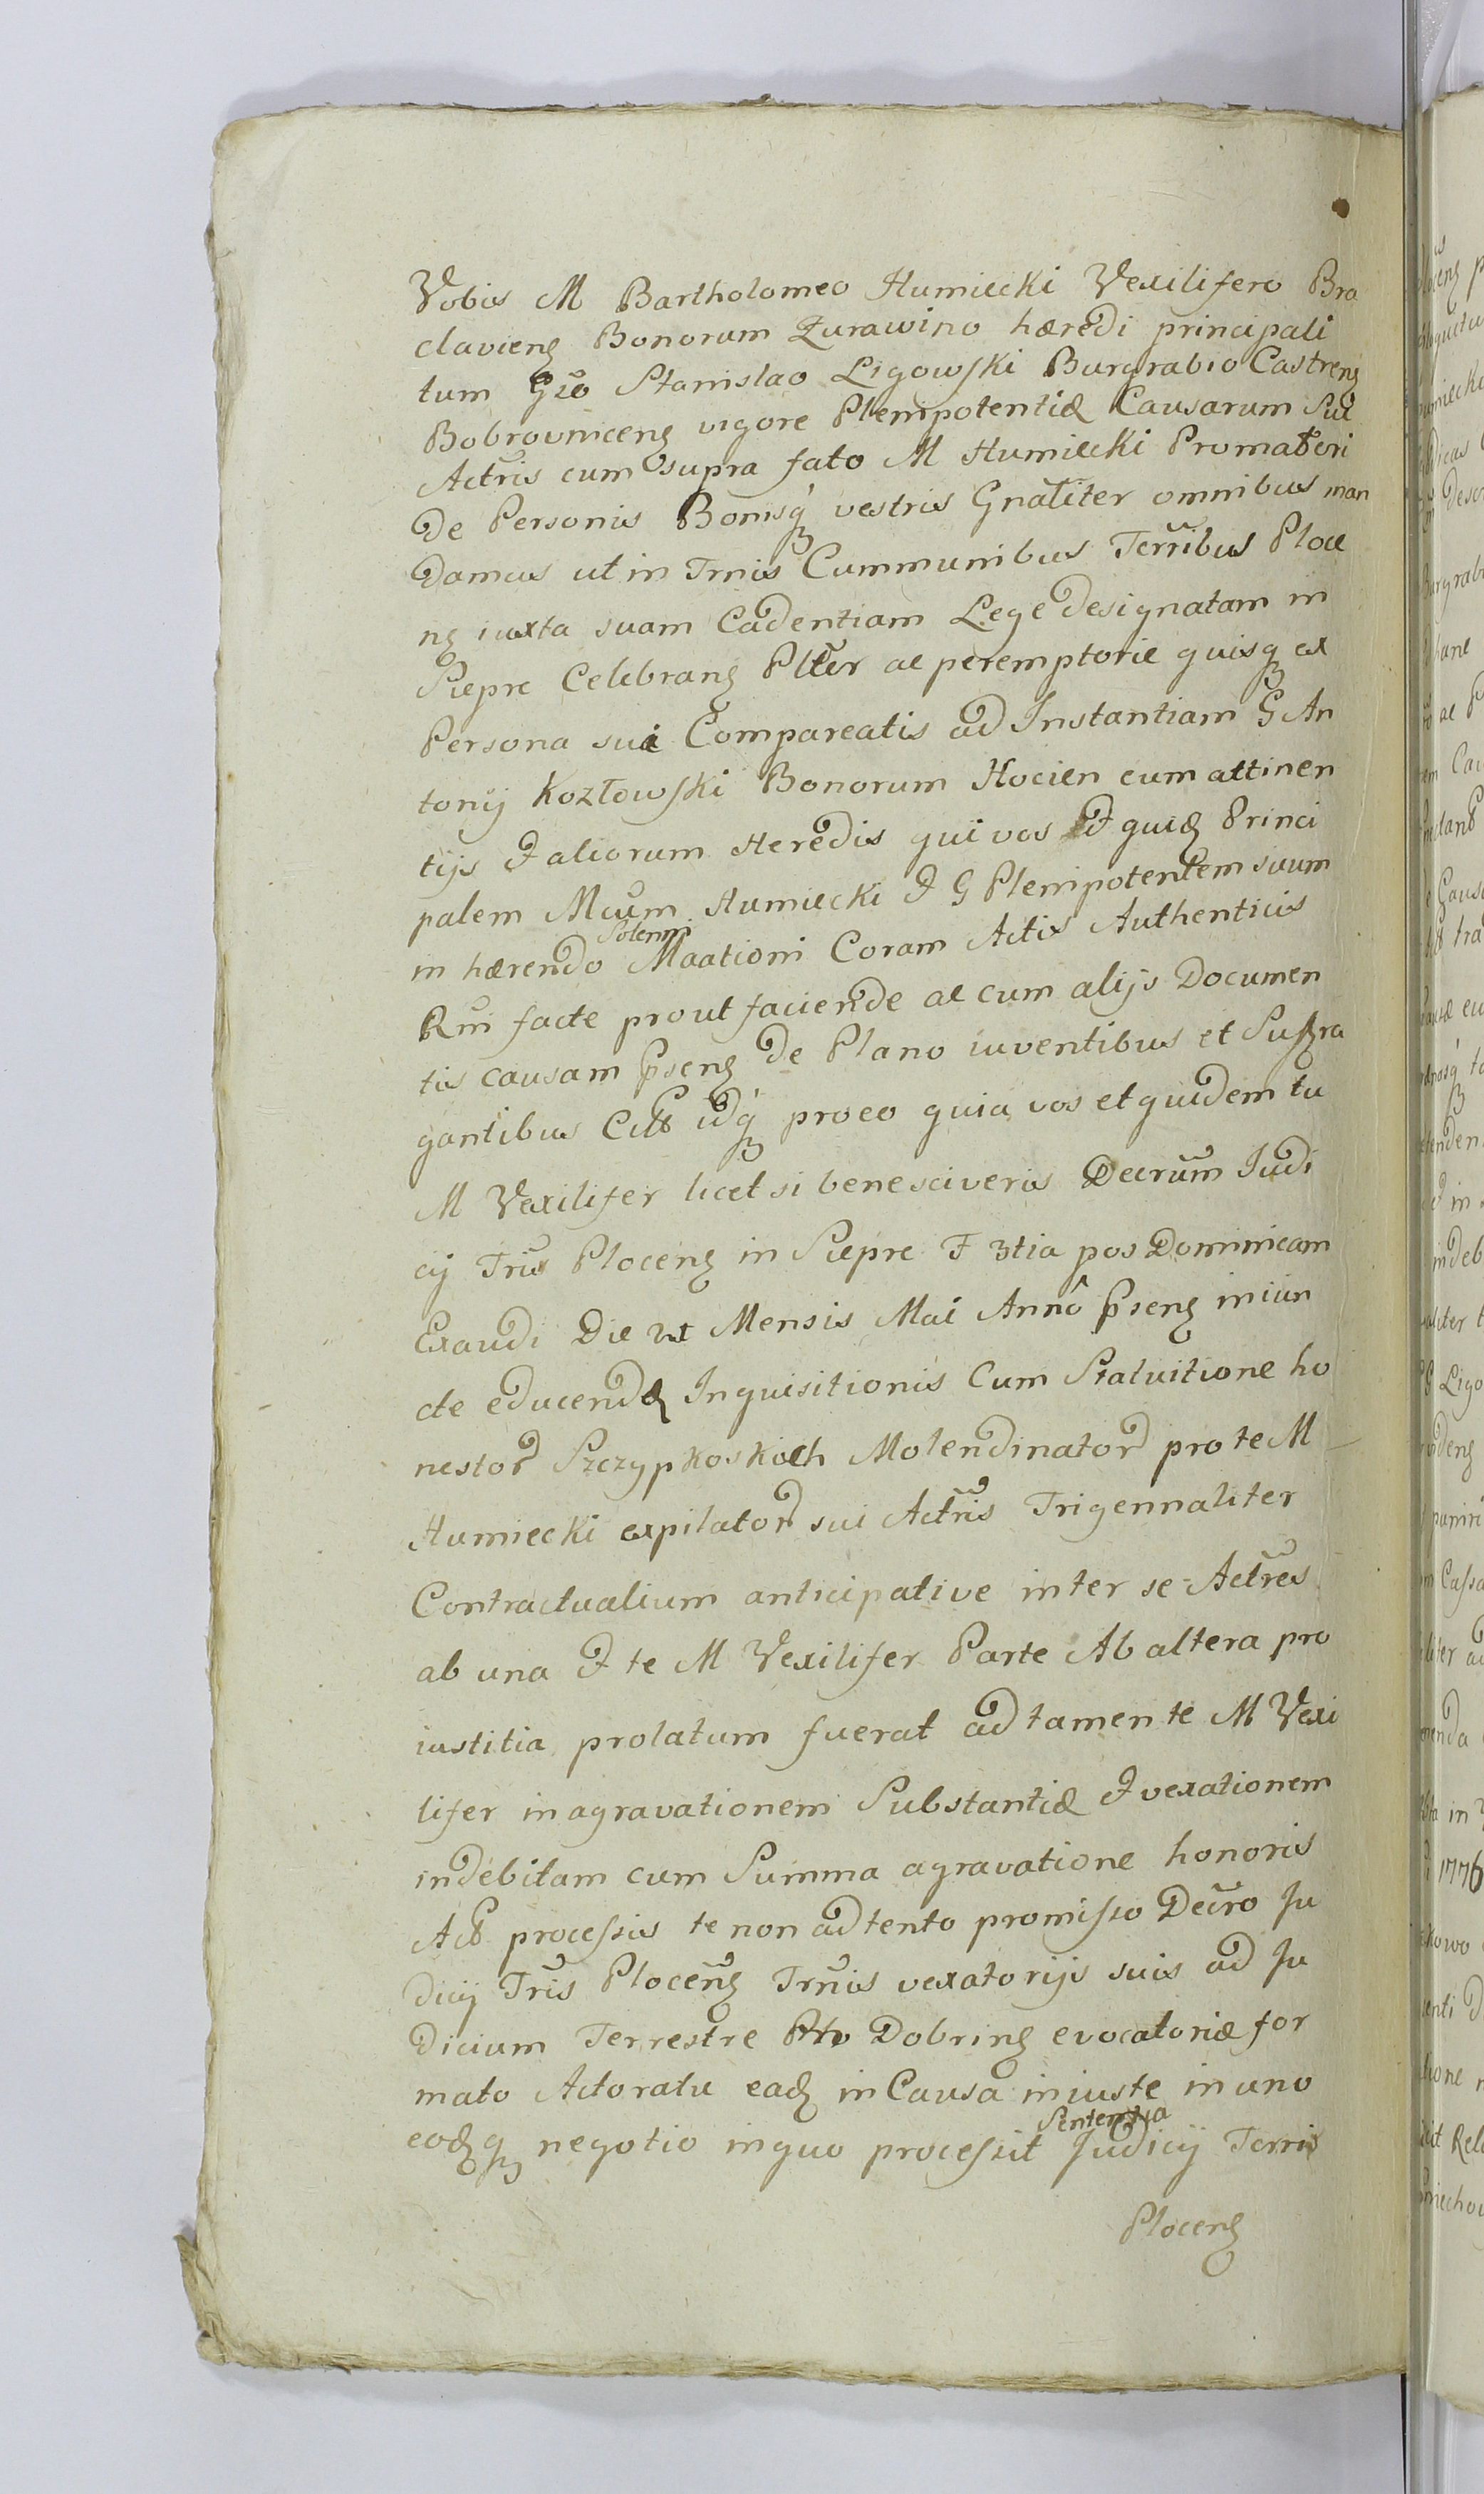 Vobis M Bartholomeo Humiecki Vexilifero Bra
clavieng Bonorum Zurawino hæredi principali
tum Gso Stanislao Ligowski Burgrabio Castreng
Bobrovniceng vigore Plenipotentiæ Causarum Sui
Actris cum supra fato M Humiecki Promatori
De Personis Bonisq vestris Gnaliter omnibus man
damus ut in Trnis Cummunibus Terribus Ploce
ng iuxta suam Cadentiam Lege designatam in
Siepre Celebrang Plter ac peremptorie quisq ex
Persona sua Compareatis ad Instantiam G An
tonij Kozłowski Bonorum Hocien cum attinen
tijs & aliorum Heredis qui vos & quid Princi
palem Mcum Humiecki & G Plenipotentem suum
Solenni
in hærendo Maationi Coram Actis Authenticis
Rni facte prout faciende ac cum alijs Documen
tis causam pseng de Plano iuventibus et Suffra
gantibus Citt idq pro eo quia vos et quidem tu
M Vexilifer licet si bene sciveris Decrum Iudi
cij Tris Ploceng in Siepre F 3tia pos Dominicam
Exaudi Die Mensis Mai Anno pseng iniun
cte educendæ Inquisitionis Cum Statuitione ho
nestor Szczypkoskich Molendinator pro te M
Humiecki expilator sui Actris Trigennaliter
Contractualium anticipative inter se Actres
ab una & te M Vexilifer Parte Ab altera pro
iustitia prolatum fuerat ad tamen te M Vexi
lifer in agravationem Substantiæ & vexationem
indebitam cum Summa agravatione honoris
Act processis te non ad tento promisso Decro Ju
dicij Tris Ploceng Trnis vexatorijs suis ad Ju
dicium Terrestre Dobring evocatoriæ for
mato Actoratu ead in Causa iniuste in uno
Sententia
eodq negotio in quo processit Judicij Terris
Ploceng